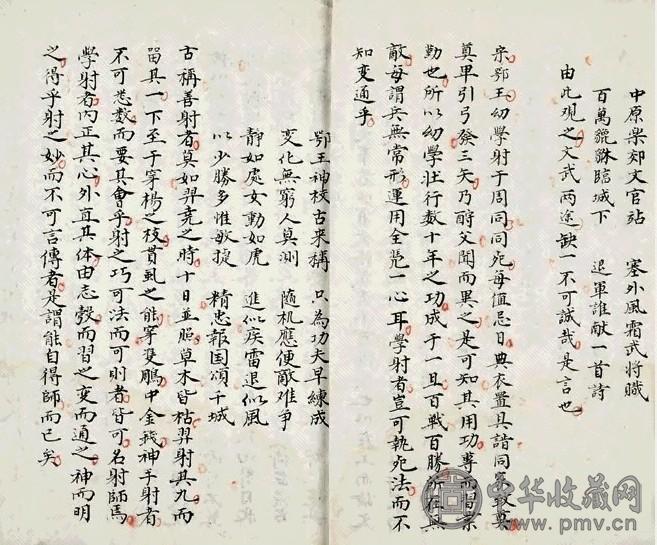 中原樂郊文官站 塞外風霜武將職
百萬貔貅臨城下 退軍誰献一首詩
由此观之文武两途缺一不可誠哉是言也
宗鄂王幼學射于周同同死每值忌日典衣置具詣同墓
奠畢引弓發三矢乃酹父聞而異之是可知其用功專而習業
勤也所以幼學壯行数十年之功成于一旦百戰百勝所在無
敵每謂兵無常形運用全凭一心耳學射者豈可執死法而不
知变通乎
鄂王神校古来稱 只為功夫早練成
变化無窮人莫測 隨机應便敵难争
静如處女動如虎 進似疾雷退似風
以少勝多惟敏捷 精忠報国頌千城
古稱善射者莫如羿堯之時十日並照草木皆枯羿射其九而
畱其一下至于穿楊之枝貫虱之能穿雙鵰中金錢神乎射者
不可悉数而要其會乎射之巧可法而可則者皆可名射師焉
學射者内正其心外直其体由志彀而習之变而通之神而明
之得乎射之妙而不可言傳者是謂能自得師而已矣
中华收藏网
www.pmv.cn